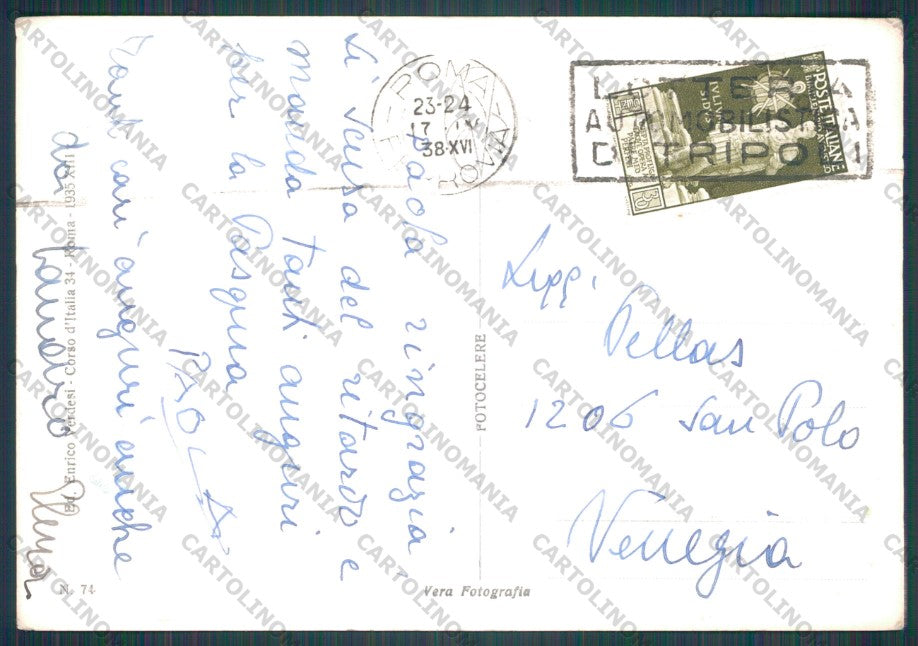 Paola ringrazia
si scusa del ritardo e
manda tanti auguri
per la Pasqua
PAOLA
Tanti cari auguri anche
da
ROMA
23-24
17 IV
38·XVI
LOTTERIA
AUTOMOBILISTICA
DI TRIPOLI
POSTE ITALIANE
Pellas
1206 San Polo
Venezia
FOTOCELERE
Ed. Enrico Verdesi - Corso d'Italia 34 - Roma - 1935 XIII
N. 74
Vera Fotografia
CARTOLINOMANIA